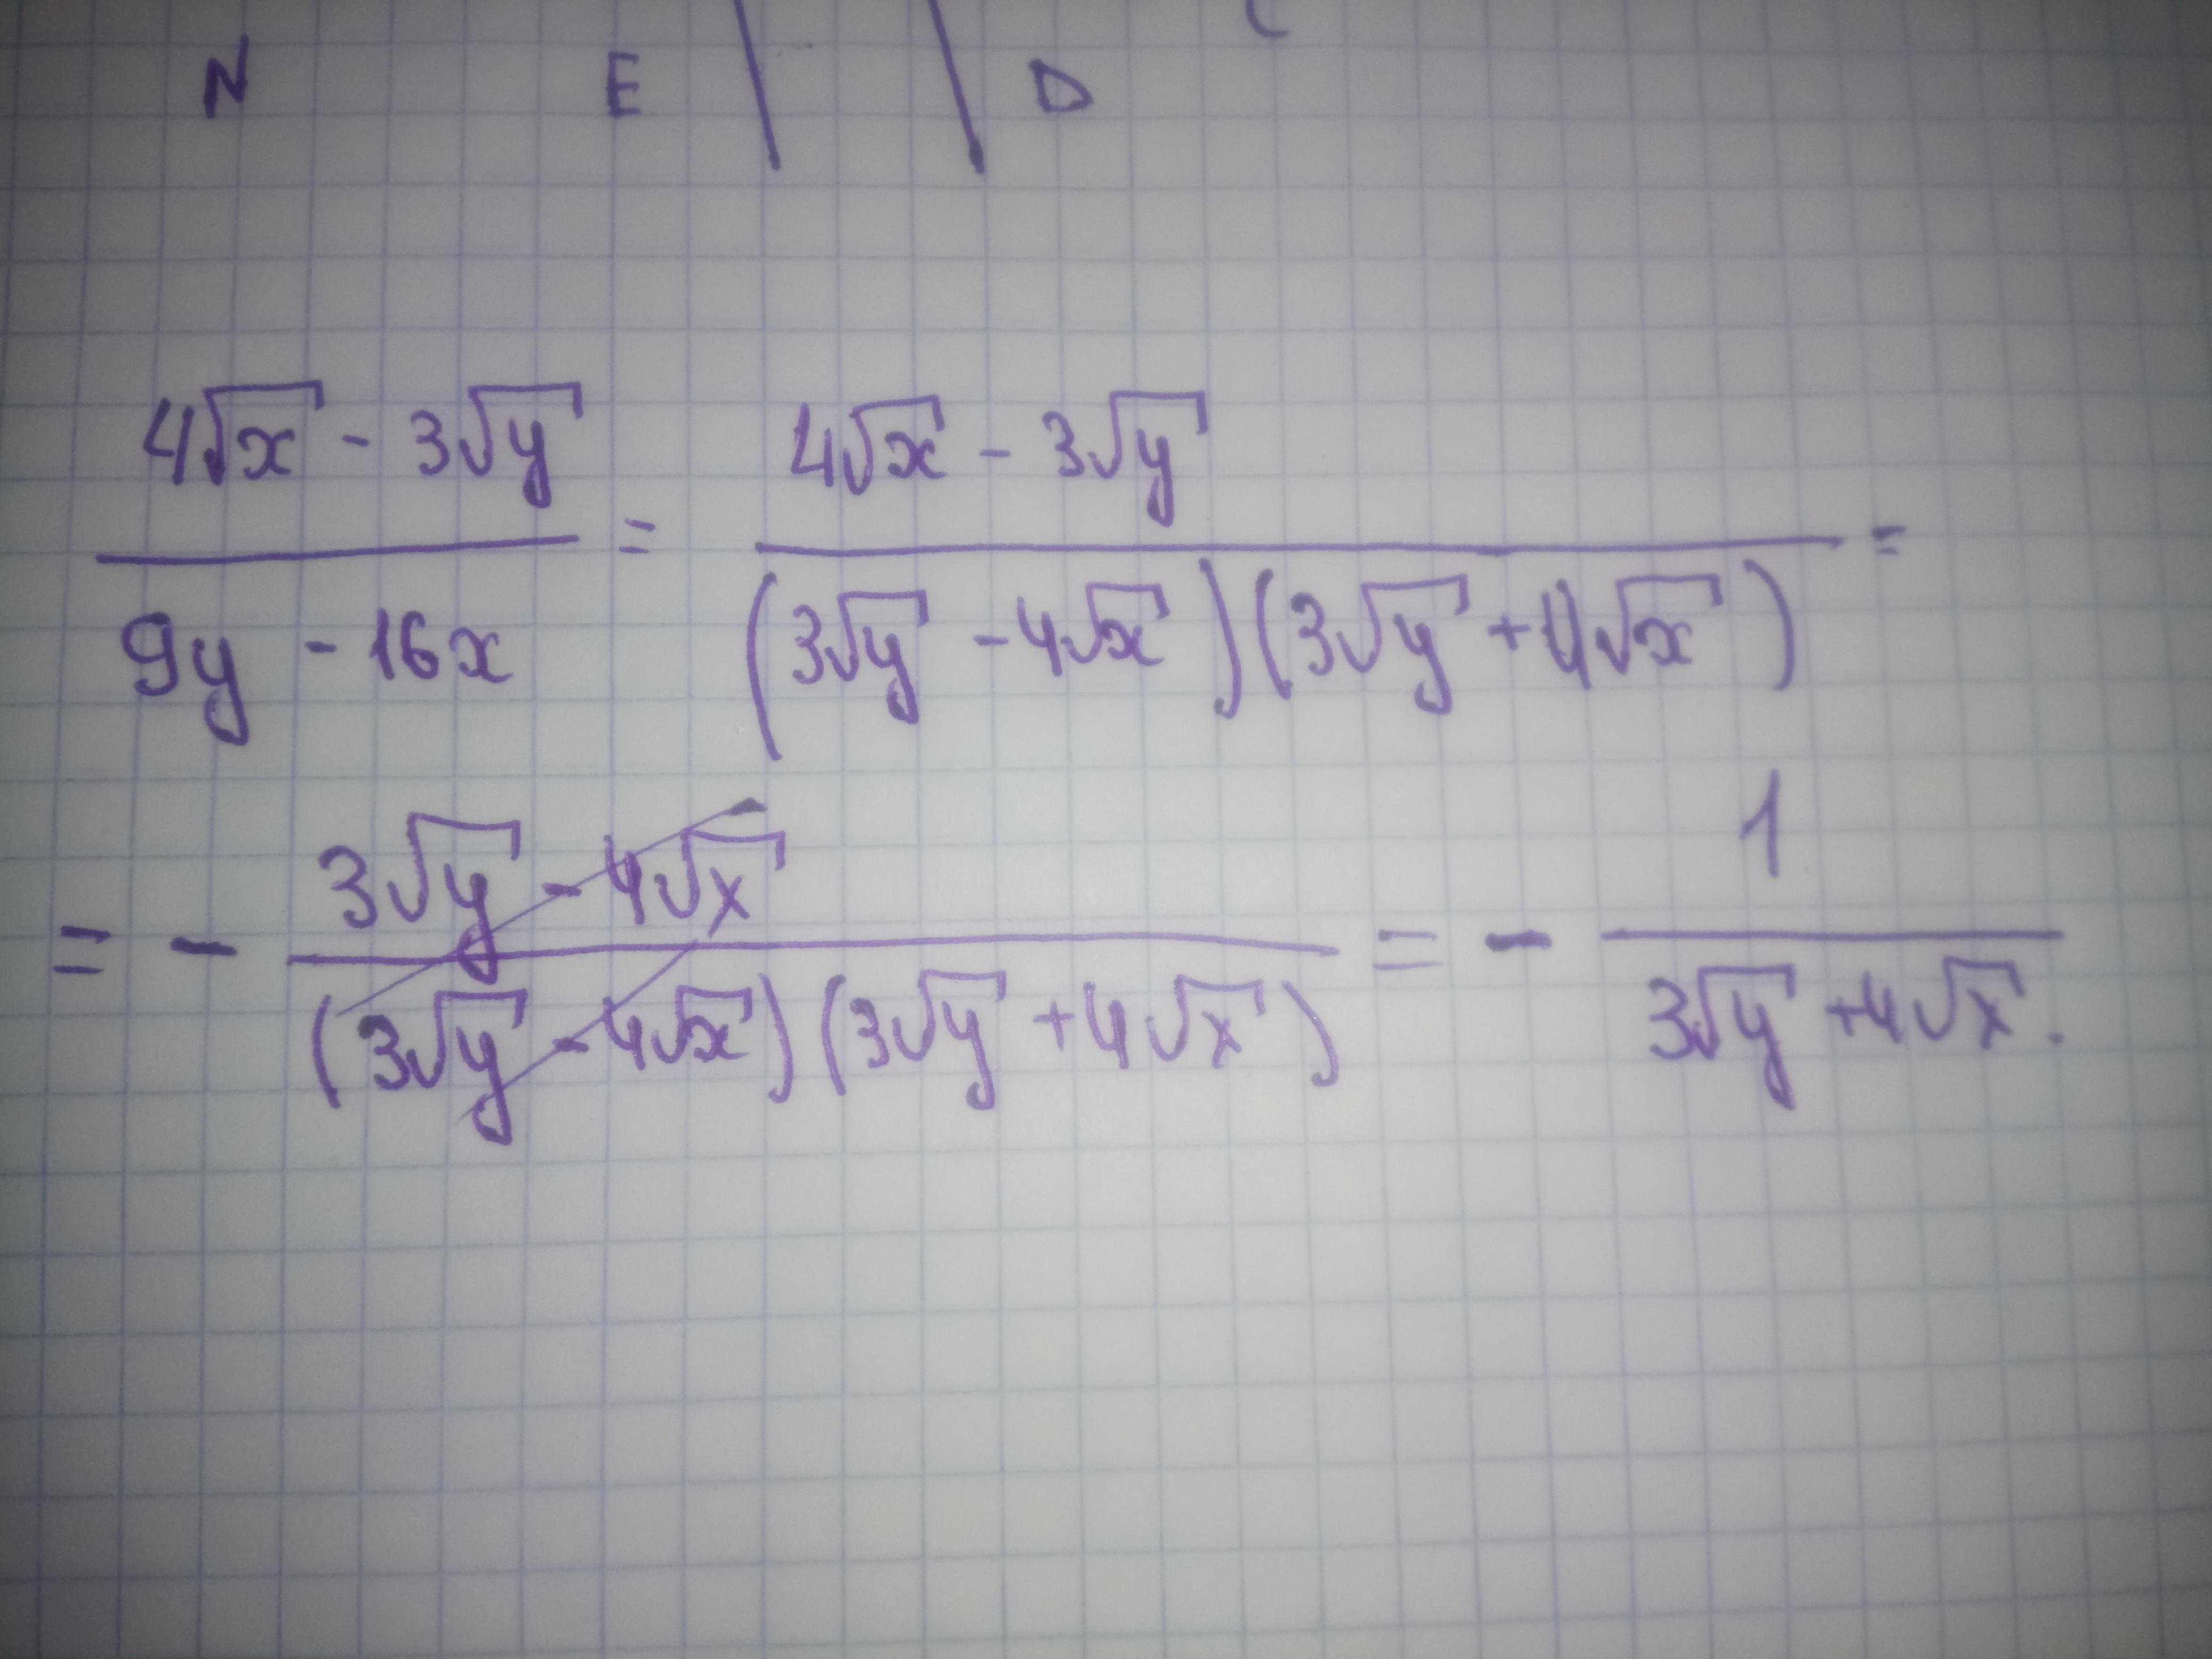 N E D
4√x - 3√y / 9y - 16x = 4√x - 3√y / (3√y - 4√x)(3√y + 4√x) =
= - 3√y - 4√x / (3√y - 4√x)(3√y + 4√x) = - 1 / 3√y + 4√x.